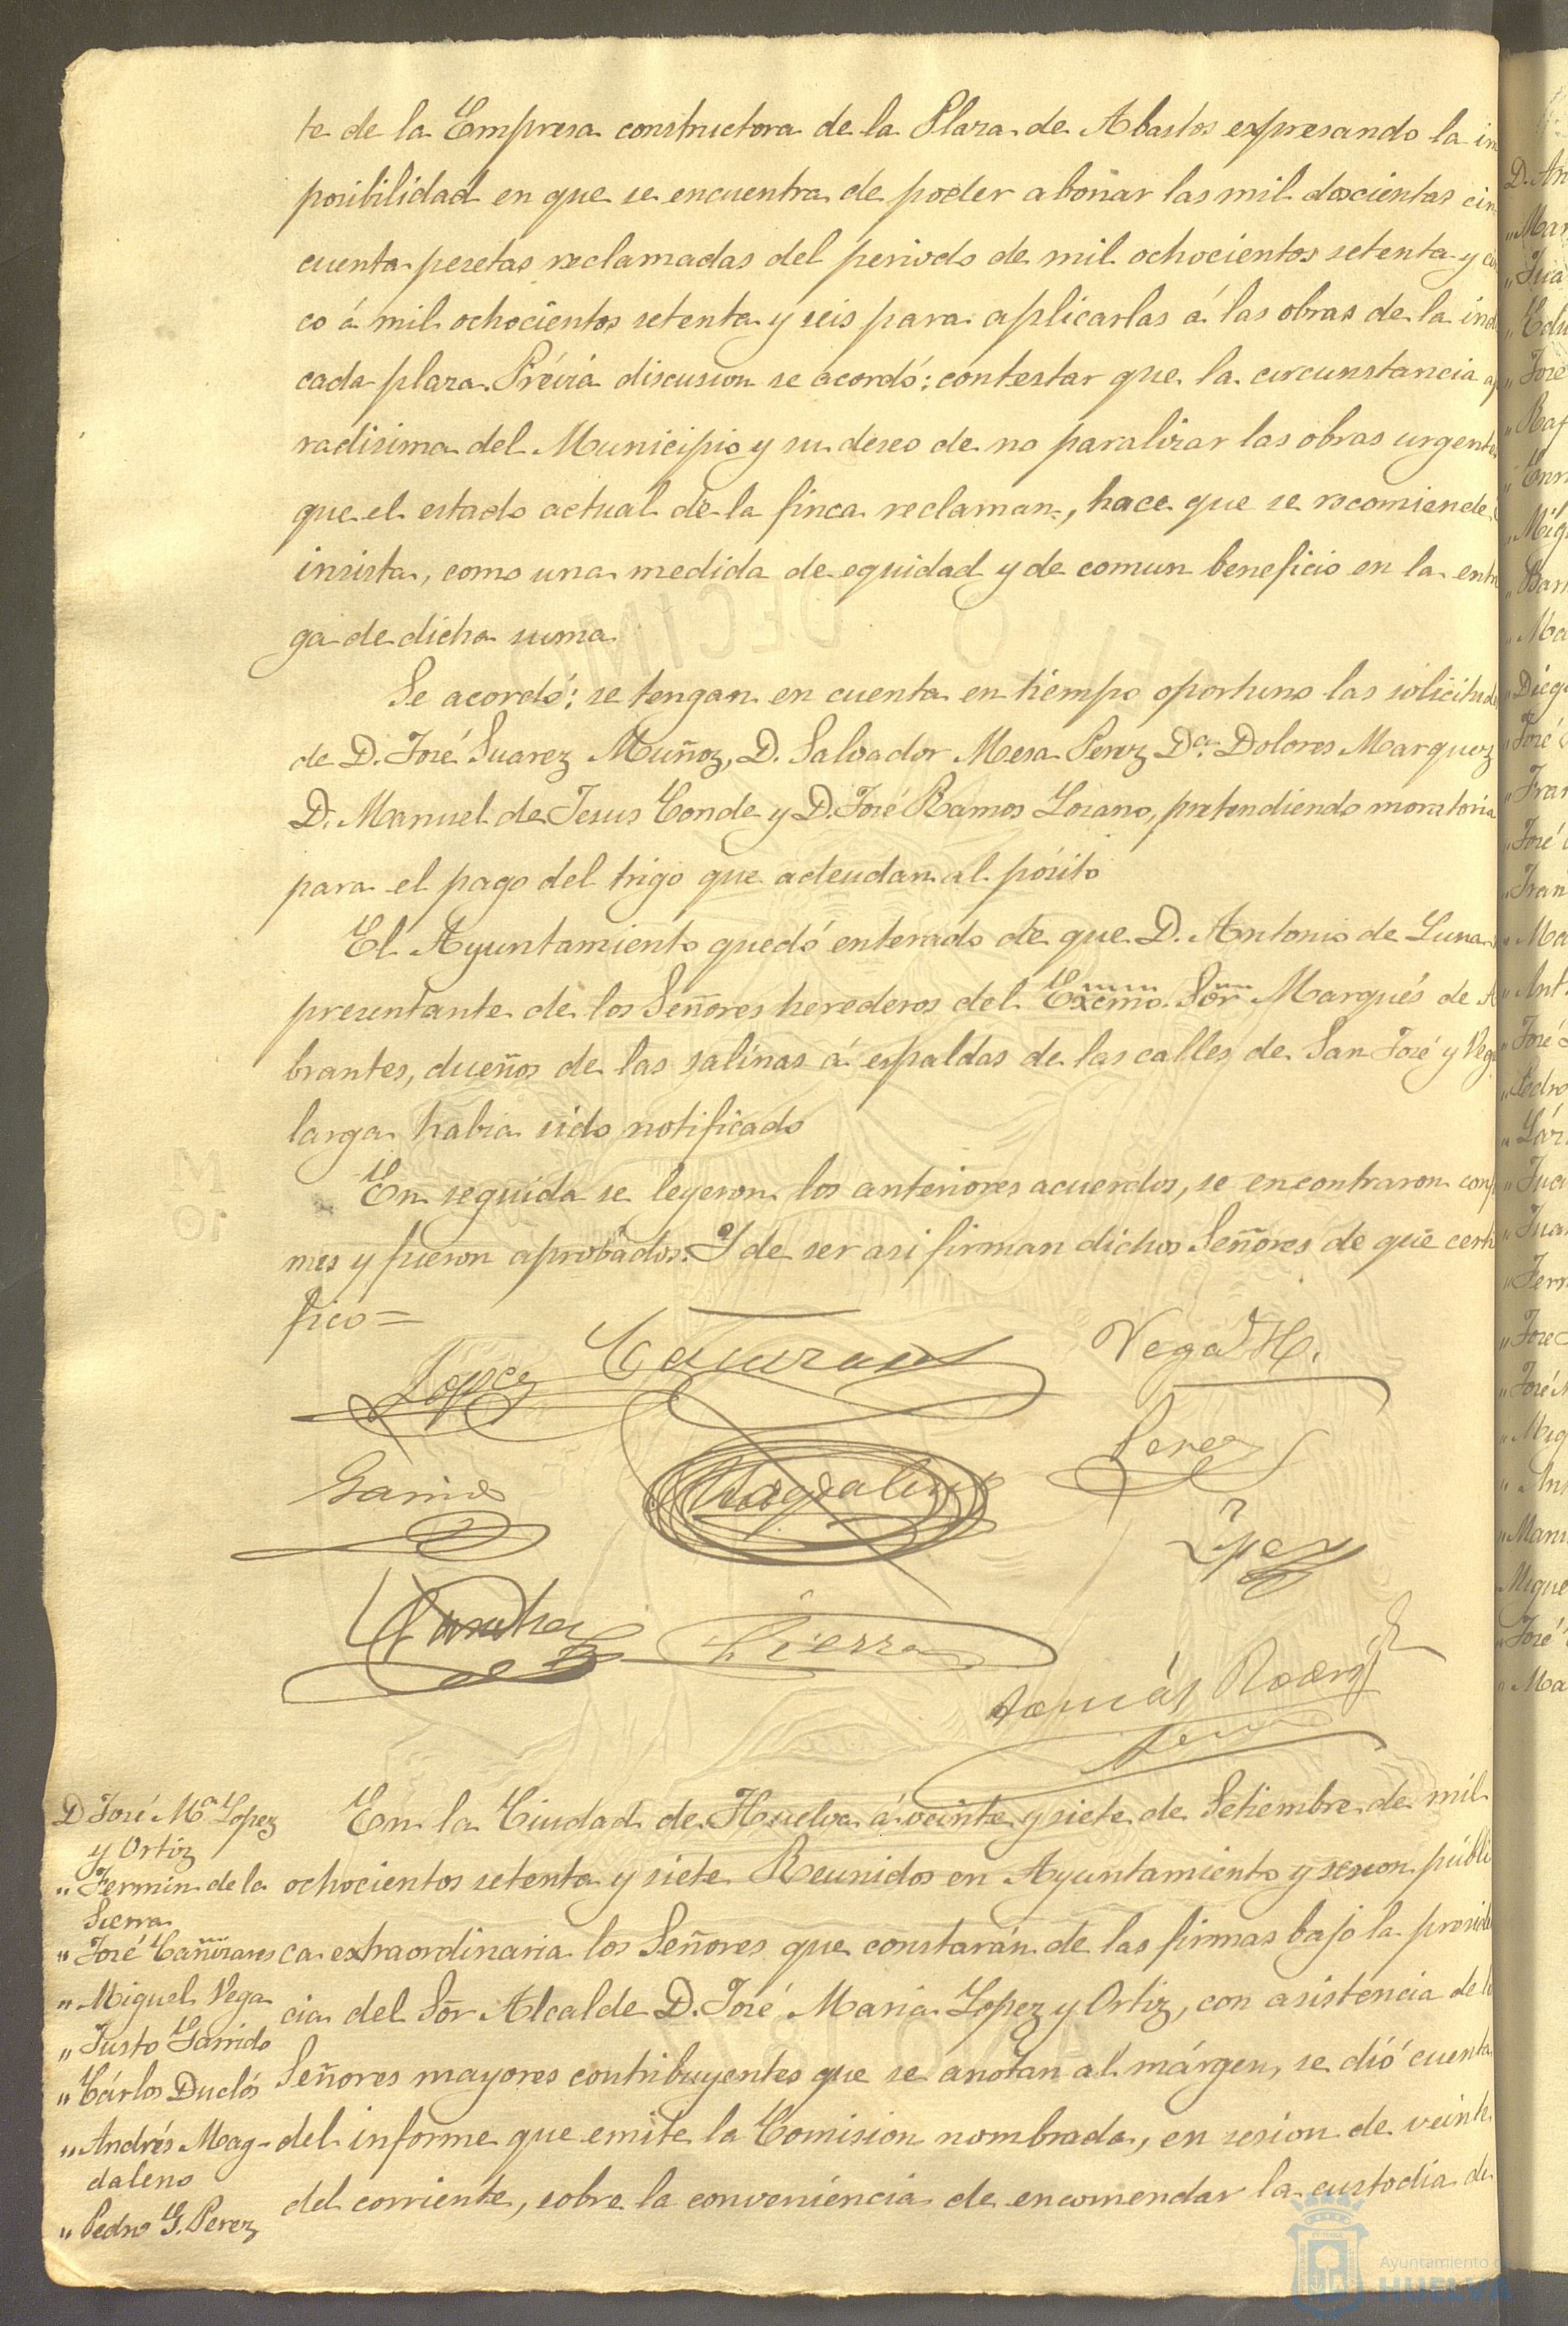 te de la Empresa constructora de la Plaza de Abastos expresando la im
posibilidad en que se encuentra de poder abonar las mil doscientas cin
cuenta pesetas reclamadas del periodo de mil ochocientos setenta y cin
co á mil ochocientos setenta y seis para aplicarlas á las obras de la indi
cada plaza. Prévia discusion se acordó: contestar que la circunstancia ap
radisima del Municipio y su deseo de no paralizar las obras urgentes
que el estado actual de la finca reclaman, hace que se recomiende é
insista, como una medida de equidad y de comun beneficio en la entre
ga de dicha suma
Se acordó: se tengan en cuenta en tiempo oportuno las solicitudes
de D. José Suarez Muñoz, D. Salvador Mesa Perez Dª Dolores Marquez
D. Manuel de Jesus Conde y D. José Ramos Lozano, pretendiendo moratoria
para el pago del trigo que adeudan al pósito
El Ayuntamiento quedó enterado de que D. Antonio de Luna
presentante de los Señores herederos del Excmo. Sor Marqués de A
brantes, dueños de las salinas á espaldas de las calles de San José y Vega
larga habia sido notificado
En seguida se leyeron los anteriores acuerdos, se encontraron confor
mes y fueron aprobados. Y de ser asi firman dichos Señores de que certi
fico=
Lopez Cañizares Vega H.
Garrido Magdaleno Perez
Lopez
Sierra
Tomás Rodrig
D José Mª Lopez
y Ortiz
" Fermin de la
Sierra
" José Cañizares
" Miguel Vega
" Justo Garrido
" Cárlos Duclós
" Andrés Mag-
daleno
" Pedro G. Perez
En la Ciudad de Huelva á veinte y siete de Setiembre de mil
ochocientos setenta y siete Reunidos en Ayuntamiento y sesion públi
ca extraordinaria los Señores que constarán de las firmas bajo la presiden
cia del Sor Alcalde D. José Maria Lopez y Ortiz, con asistencia de los
Señores mayores contribuyentes que se anotan al márgen, se dió cuenta
del informe que emite la Comision nombrada, en sesion de veinte
del corriente, sobre la conveniencia de encomendar la custodia de
Ayuntamiento de
HUELVA